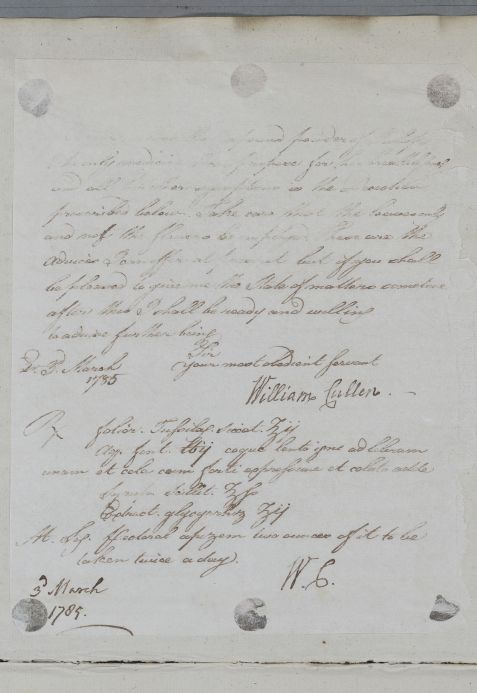 powder of
the only medicine I propose for
and all the other symptoms is the decoction
prescribed below. Take care that the leaves only
and not the flowers be employed. These are the
advices I can offer at present but if you shall
be pleased to give me the State of matters sometime
after this I shall be ready and willing
to advise further being
Sir
3d March your most obedient Servant
1785
William Cullen.
R folior. Tussilag. siccat. ℥ij
Aq. font. ℔ij coque lento igne ad libram
unam et cola cum forti expressione et colat. adde
Syrup. scillit. ℥ſs
Extract. glycyrrhiz. ʒij
M. Sig. Pectoral apozem two ounces of it to be
taken twice a day.
W. C.
3d March
1785.